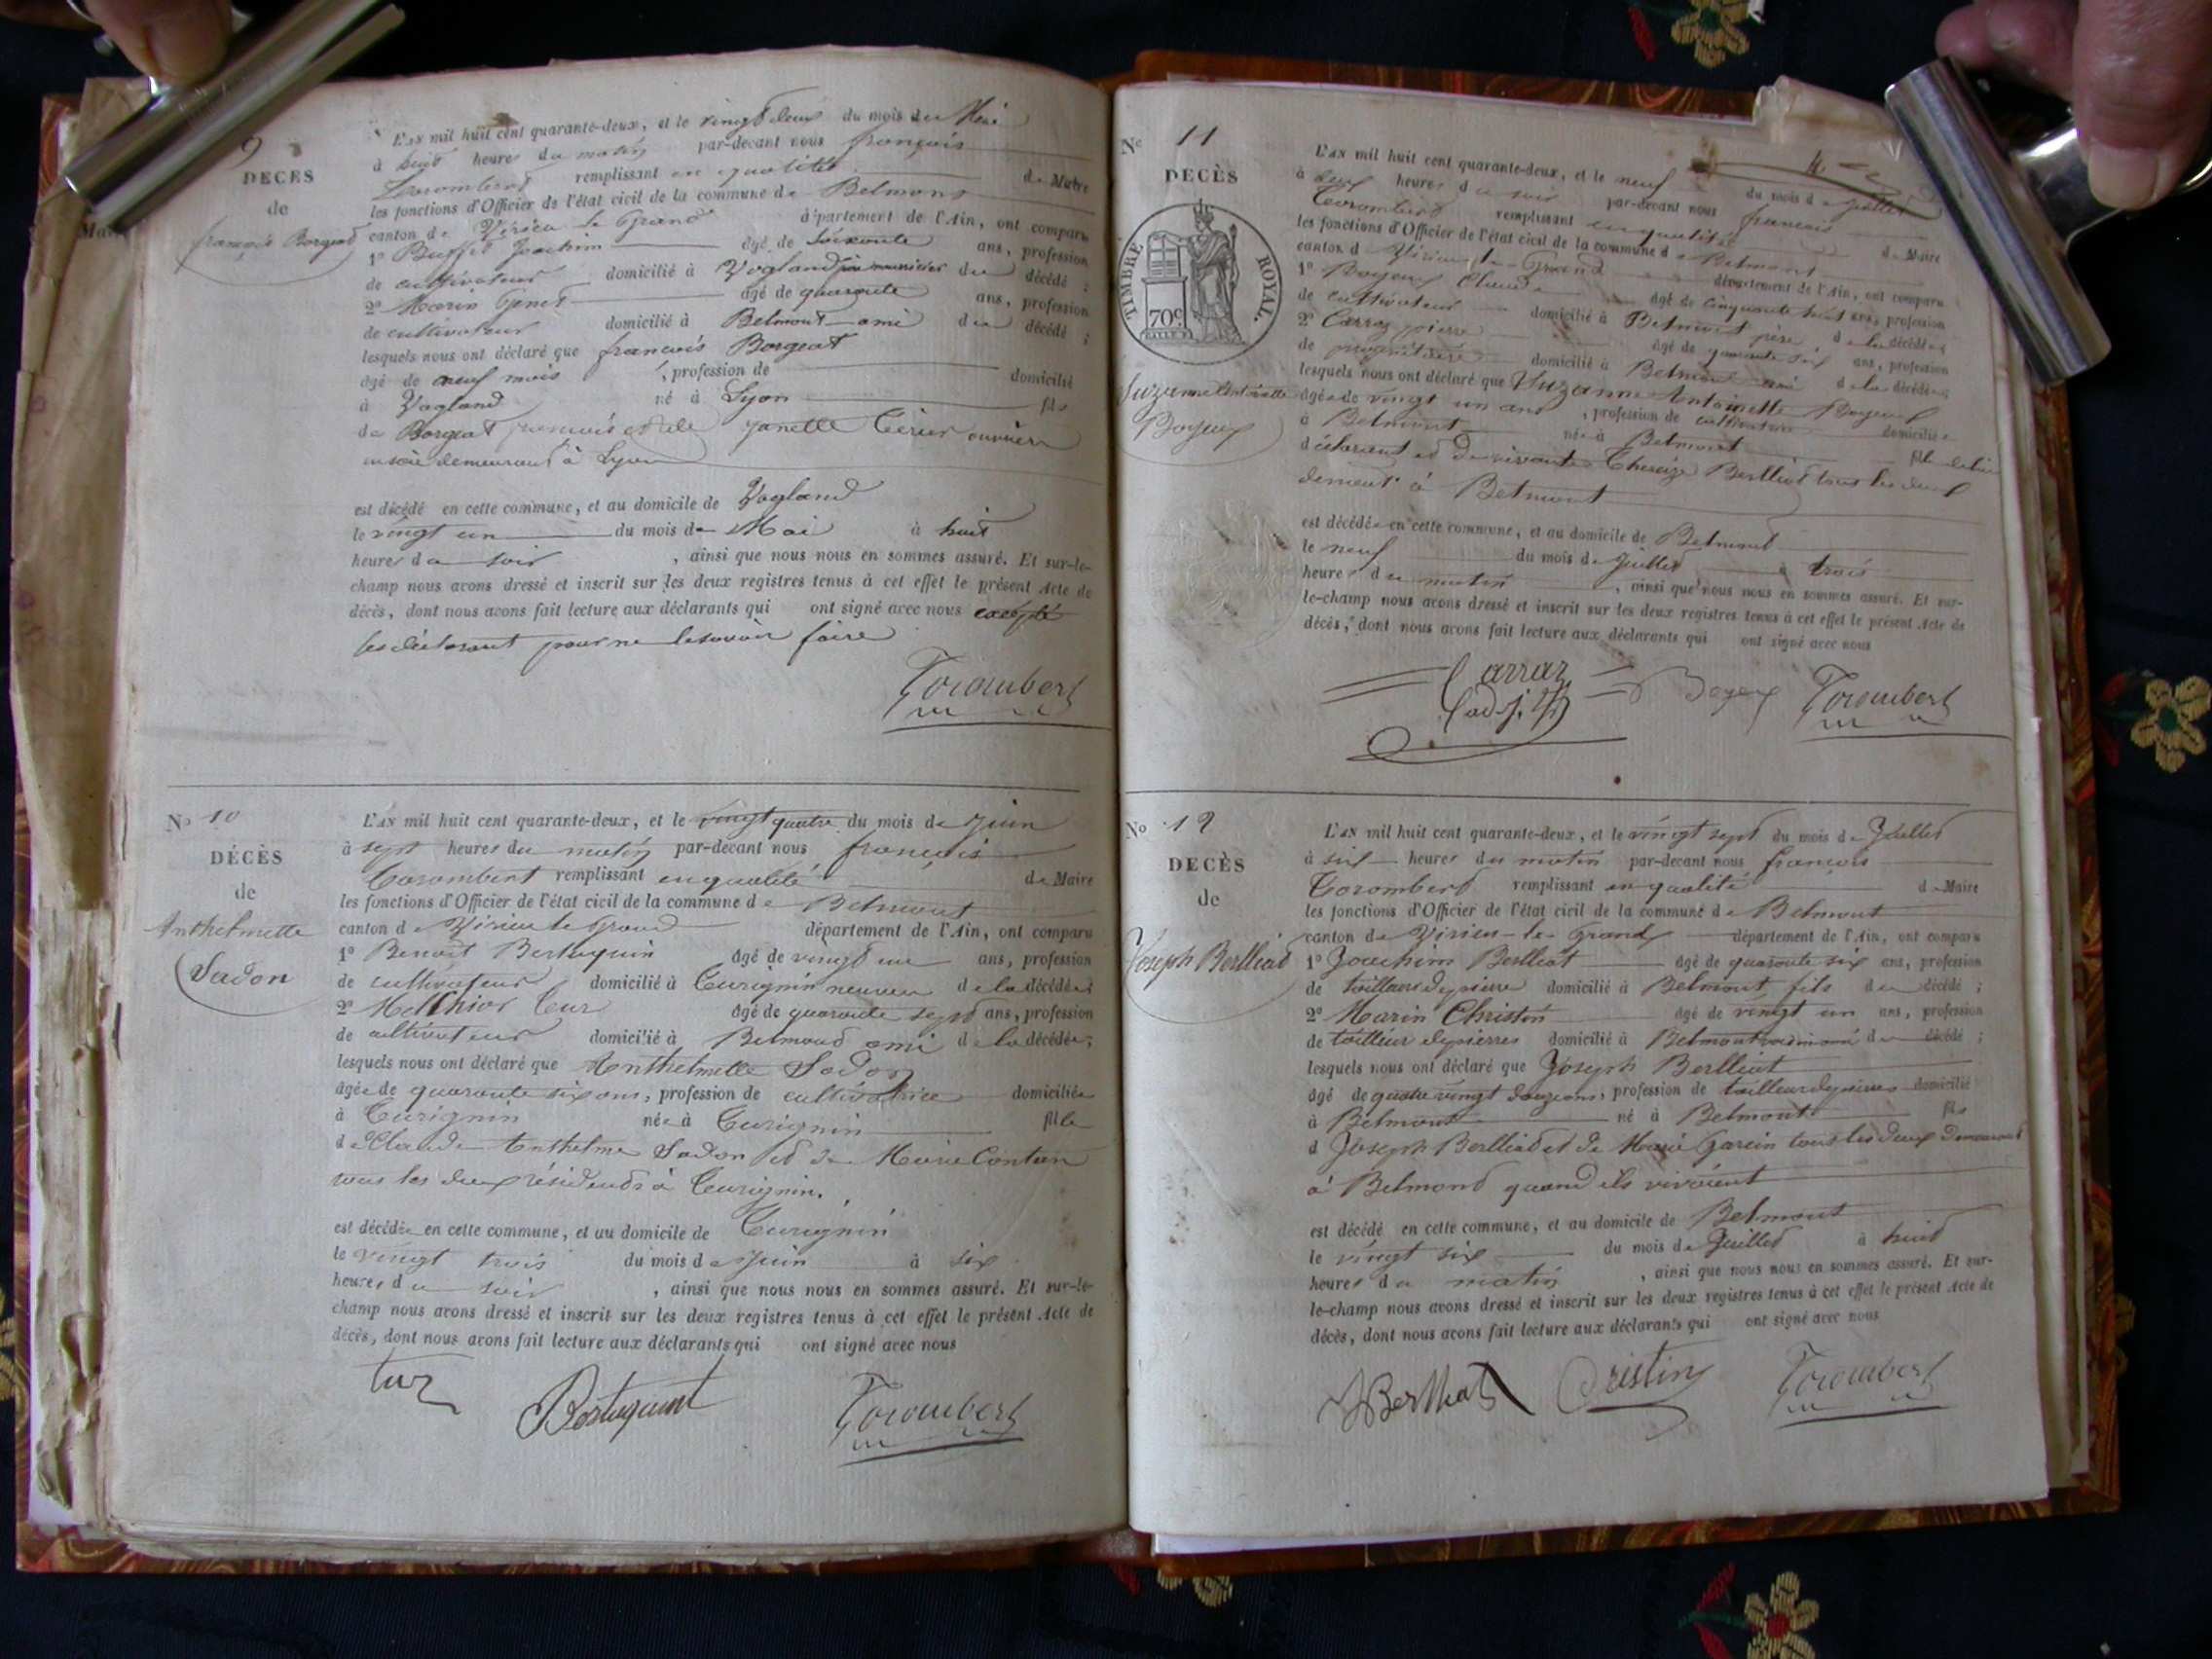 9
DÉCÈS
de
françois Borgeat
L'AN mil huit cent quarante-deux, et le vingt deux du mois de Mai
à huit heures du matin par-devant nous françois
Torombert remplissant en qualité de Maire
les fonctions d'Officier de l'état civil de la commune de Belmont
canton de Virieu le Grand département de l'Ain, ont comparu
1º Buffet Joachim âgé de soixante ans, profession
de cultivateur domicilié à Vogland père nourricier du décédé ;
2º Marin Genet âgé de quarante ans, profession
de cultivateur domicilié à Belmont ami du décédé ;
lesquels nous ont déclaré que françois Borgeat
âgé de neuf mois , profession de domicilié
à Vogland né à Lyon fils
de Borgeat françois et de Janette ouvrier
en soie demeurant à Lyon
est décédé en cette commune, et au domicile de Vogland
le vingt un du mois de Mai à huit
heures du soir , ainsi que nous nous en sommes assuré. Et sur-le-
champ nous avons dressé et inscrit sur les deux registres tenus à cet effet le présent Acte de
décès, dont nous avons fait lecture aux déclarants qui ont signé avec nous excepté
les déclarant pour ne le savoir faire
Torombert
Nº 10
DÉCÈS
de
Anthelmette
Sadon
L'AN mil huit cent quarante-deux, et le vingt quatre du mois de Juin
à sept heures du matin par-devant nous françois
Torombert remplissant en qualité de Maire
les fonctions d'Officier de l'état civil de la commune de Belmont
canton de Virieu le Grand département de l'Ain, ont comparu
1º Benoit Bertuquin âgé de vingt un ans, profession
de cultivateur domicilié à Curignin neuveu de la décédée ;
2º Melchior Tur âgé de quarante sept ans, profession
de cultivateur domicilié à Belmond ami de la décédée ;
lesquels nous ont déclaré que Anthelmette Sadon
âgée de quarante six ans, profession de cultivatrice domiciliée
à Curignin née à Curignin fille
de Claude Anthelme Sadon et de Marie
tous les deux résidends à Curignin.
est décédée en cette commune, et au domicile de Curignin
le vingt trois du mois de Juin à six
heures du soir , ainsi que nous nous en sommes assuré. Et sur-le-
champ nous avons dressé et inscrit sur les deux registres tenus à cet effet le présent Acte de
décès, dont nous avons fait lecture aux déclarants qui ont signé avec nous
tur Bertuquint Torombert
Nº 11
DÉCÈS
TIMBRE ROYAL.
70c
Suzanne Antoinette
Boyeux
L'AN mil huit cent quarante-deux, et le neuf du mois de Juillet
à deux heures du soir par-devant nous francois
Torombert remplissant en qualité de Maire
les fonctions d'Officier de l'état civil de la commune de Belmont
canton de Virieu le Grand département de l'Ain, ont comparu
1º Boyeux Claude âgé de cinquante huit ans, profession
de cultivateur domicilié à Belmont père de la décédée ;
2º Carraz pierre âgé de quarante six ans, profession
de propriétaire domicilié à Belmont ami de la décédée ;
lesquels nous ont déclaré que Suzanne Antoinette Boyeux
âgée de vingt un ans , profession de cultivatrice domiciliée
à Belmont née à Belmont fille de
déclarant et de vivante Thereize Berlliat tous les deux
demeut à Belmont
est décédée en cette commune, et au domicile de Belmont
le neuf du mois de Juillet à trois
heures du matin , ainsi que nous nous en sommes assuré. Et sur-
le-champ nous avons dressé et inscrit sur les deux registres tenus à cet effet le présent Acte de
décès, dont nous avons fait lecture aux déclarants qui ont signé avec nous
Carraz Boyeux Torombert
Nº 12
DÉCÈS
de
Joseph Berlliat
L'AN mil huit cent quarante-deux, et le vingt sept du mois de Juillet
à six heures du matin par-devant nous françois
Torombert remplissant en qualité de Maire
les fonctions d'Officier de l'état civil de la commune de Belmont
canton de Virieu-le-Grand département de l'Ain, ont comparu
1º Joachim Berlliat âgé de quarante six ans, profession
de tailleur de pierre domicilié à Belmont fils du décédé ;
2º Marin Christin âgé de vingt un ans, profession
de tailleur de pierres domicilié à Belmont du décédé ;
lesquels nous ont déclaré que Joseph Berlliat
âgé de quatre vingt douze ans, profession de tailleur de pierres domicilié
à Belmont né à Belmont fils
d Joseph Berlliat et de Marie Garein tous les deux demeurant
à Belmond quand ils vivaient
est décédé en cette commune, et au domicile de Belmont
le vingt six du mois de Juillet à huit
heures du matin , ainsi que nous nous en sommes assuré. Et sur-
le-champ nous avons dressé et inscrit sur les deux registres tenus à cet effet le présent Acte de
décès, dont nous avons fait lecture aux déclarants qui ont signé avec nous
J Berlliat Cristin Torombert